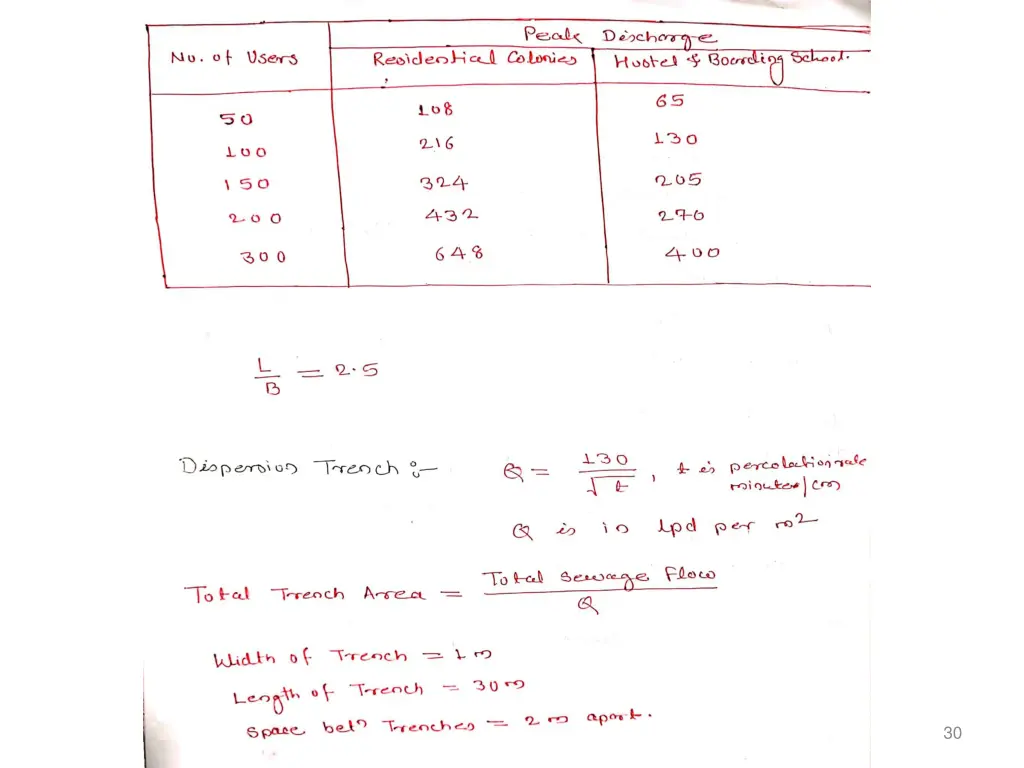 Peak Discharge
No. of Users Residential Colonies Hostel & Boarding School.
50 108 65
100 216 130
150 324 205
200 432 270
300 648 400
L/B = 2.5
Dispersion Trench :- Q = 130/√t , t is percolation rate
minutes/cm
Q is in lpd per m²
Total Trench Area = Total Sewage Flow / Q
Width of Trench = 1 m
Length of Trench = 30 m
Space betn Trenches = 2 m apart.
30